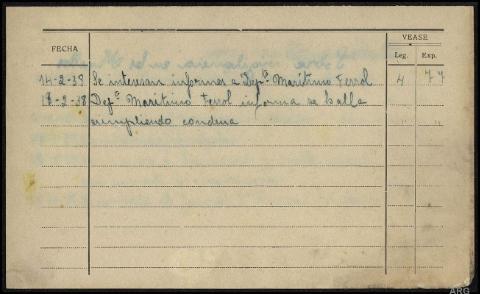 VEASE
FECHA Leg. Exp.
14-2-38 Se interesan informes a Depº Marítimo Ferrol 4 77
18-2-38 Depº Marítimo Ferrol informa se halla
cumpliendo condena " "
ARG